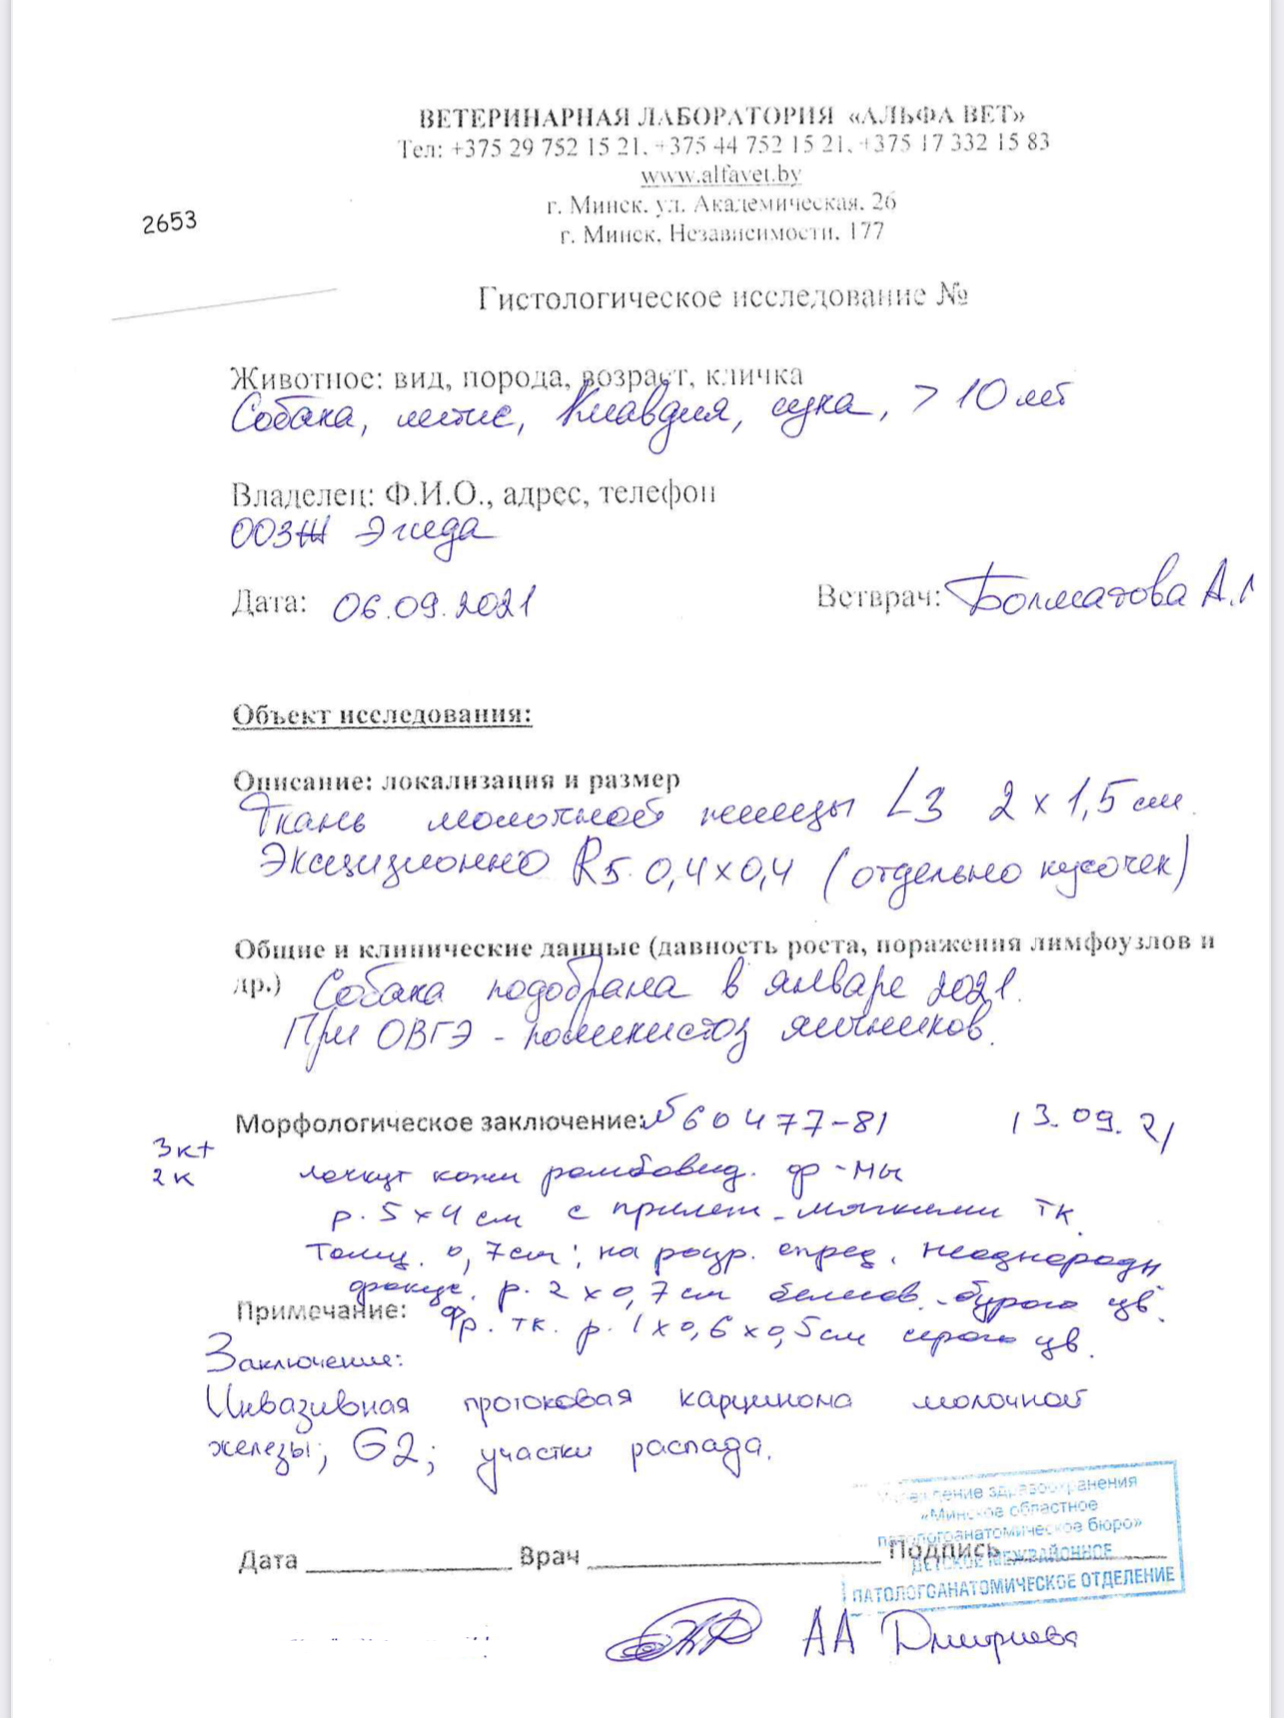 ВЕТЕРИНАРНАЯ ЛАБОРАТОРИЯ «АЛЬФА ВЕТ»
Тел: +375 29 752 15 21, +375 44 752 15 21, +375 17 332 15 83
www.alfavet.by
г. Минск, ул. Академическая, 26
2653
г. Минск, Независимости, 177
Гистологическое исследование №
Животное: вид, порода, возраст, кличка
Собака, метис, Клавдия, сука, > 10 лет
Владелец: Ф.И.О., адрес, телефон
ООЗЖ Эгида
Дата: 06.09.2021 Ветврач: Болматова А.
Объект исследования:
Описание: локализация и размер
Ткань молочной железы L3 2 x 1,5 см.
Эксцизионно R5 0,4x0,4 (отдельно кусочек)
Общие и клинические данные (давность роста, поражения лимфоузлов и
др.) Собака подобрана в январе 2021.
При ОВГЭ - поликистоз яичников.
Морфологическое заключение: № 60477-81 13.09.21
3к+
2к лоскут кожи ромбовид. ф-мы
р. 5x4 см с прилеж. мягкими тк.
толщ. 0,7см; на разр. опред. неоднородн
фокус. р. 2x0,7см белесов.-бурого цв.
Примечание: Фр. тк. р. 1x0,6x0,5см серого цв.
Заключение:
Инвазивная протоковая карцинома молочной
железы; G2; участки распада.
Учреждение здравоохранения
«Минское областное
патологоанатомическое бюро»
Дата Врач Подпись
ДЕТСКОЕ МЕЖРАЙОННОЕ
ПАТОЛОГОАНАТОМИЧЕСКОЕ ОТДЕЛЕНИЕ
АА Дмитриева